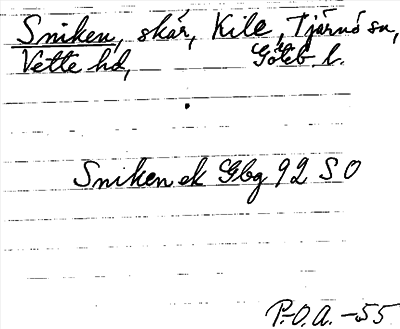 Sniken, skär, Kile, Tjärnö sn,
Vette hd, Göteb. l.
Sniken ek Gbg 92 SO
P.O.A. -55